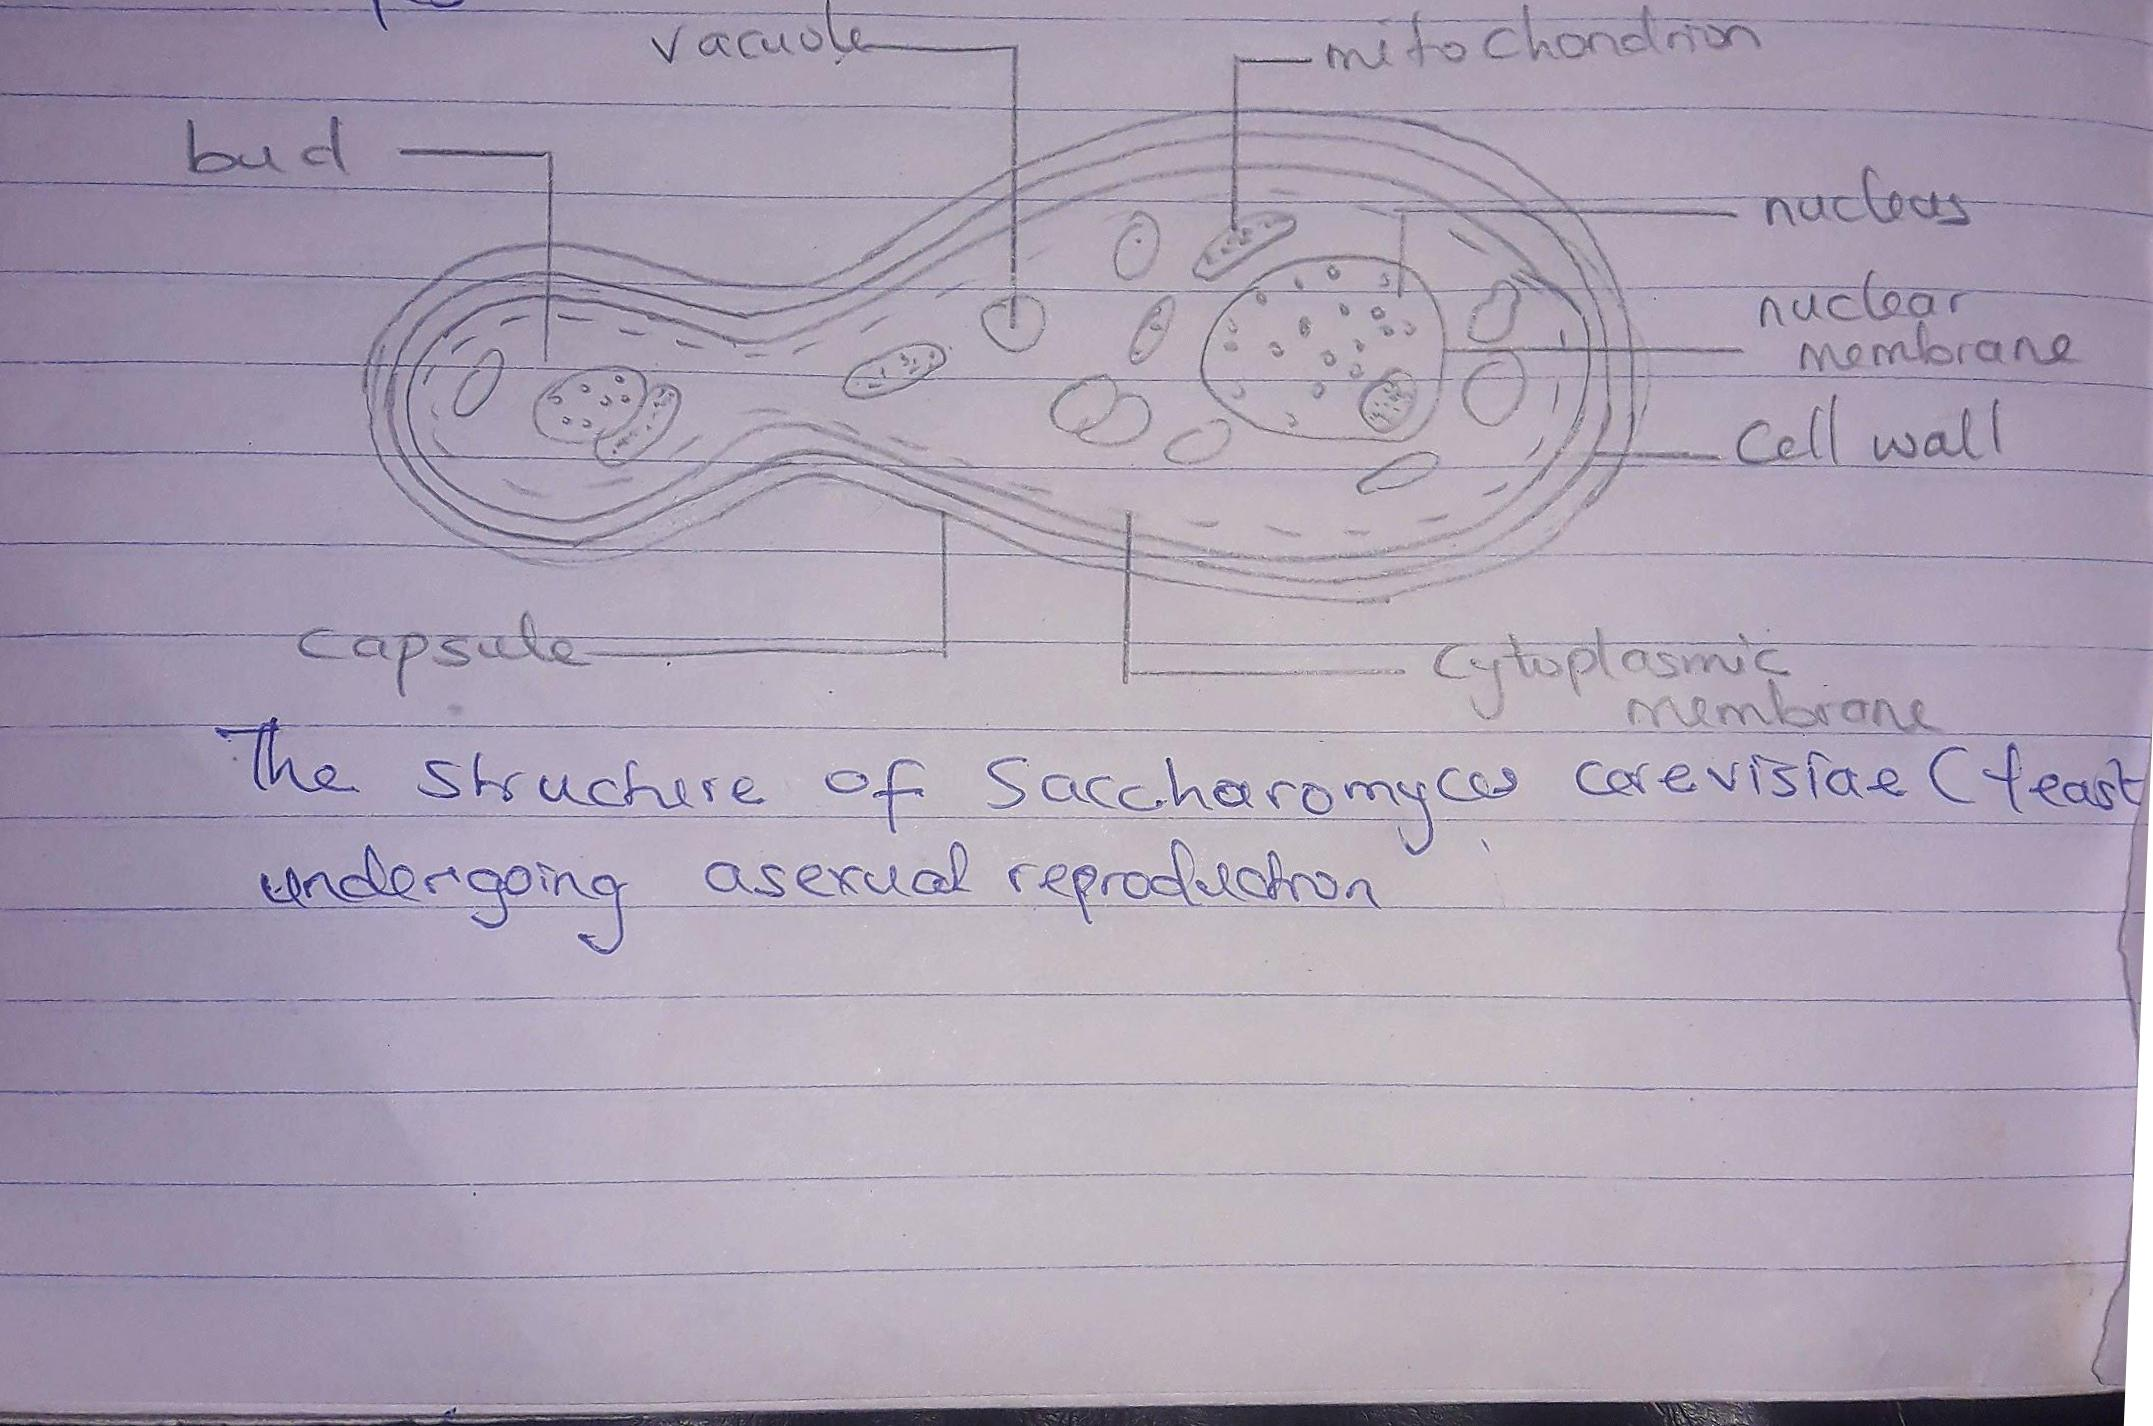 vacuole
mitochondrion
bud
nucleus
nuclear
membrane
Cell wall
capsule
cytoplasmic
membrane
The structure of Saccharomyces cerevisiae (Yeast
undergoing asexual reproduction